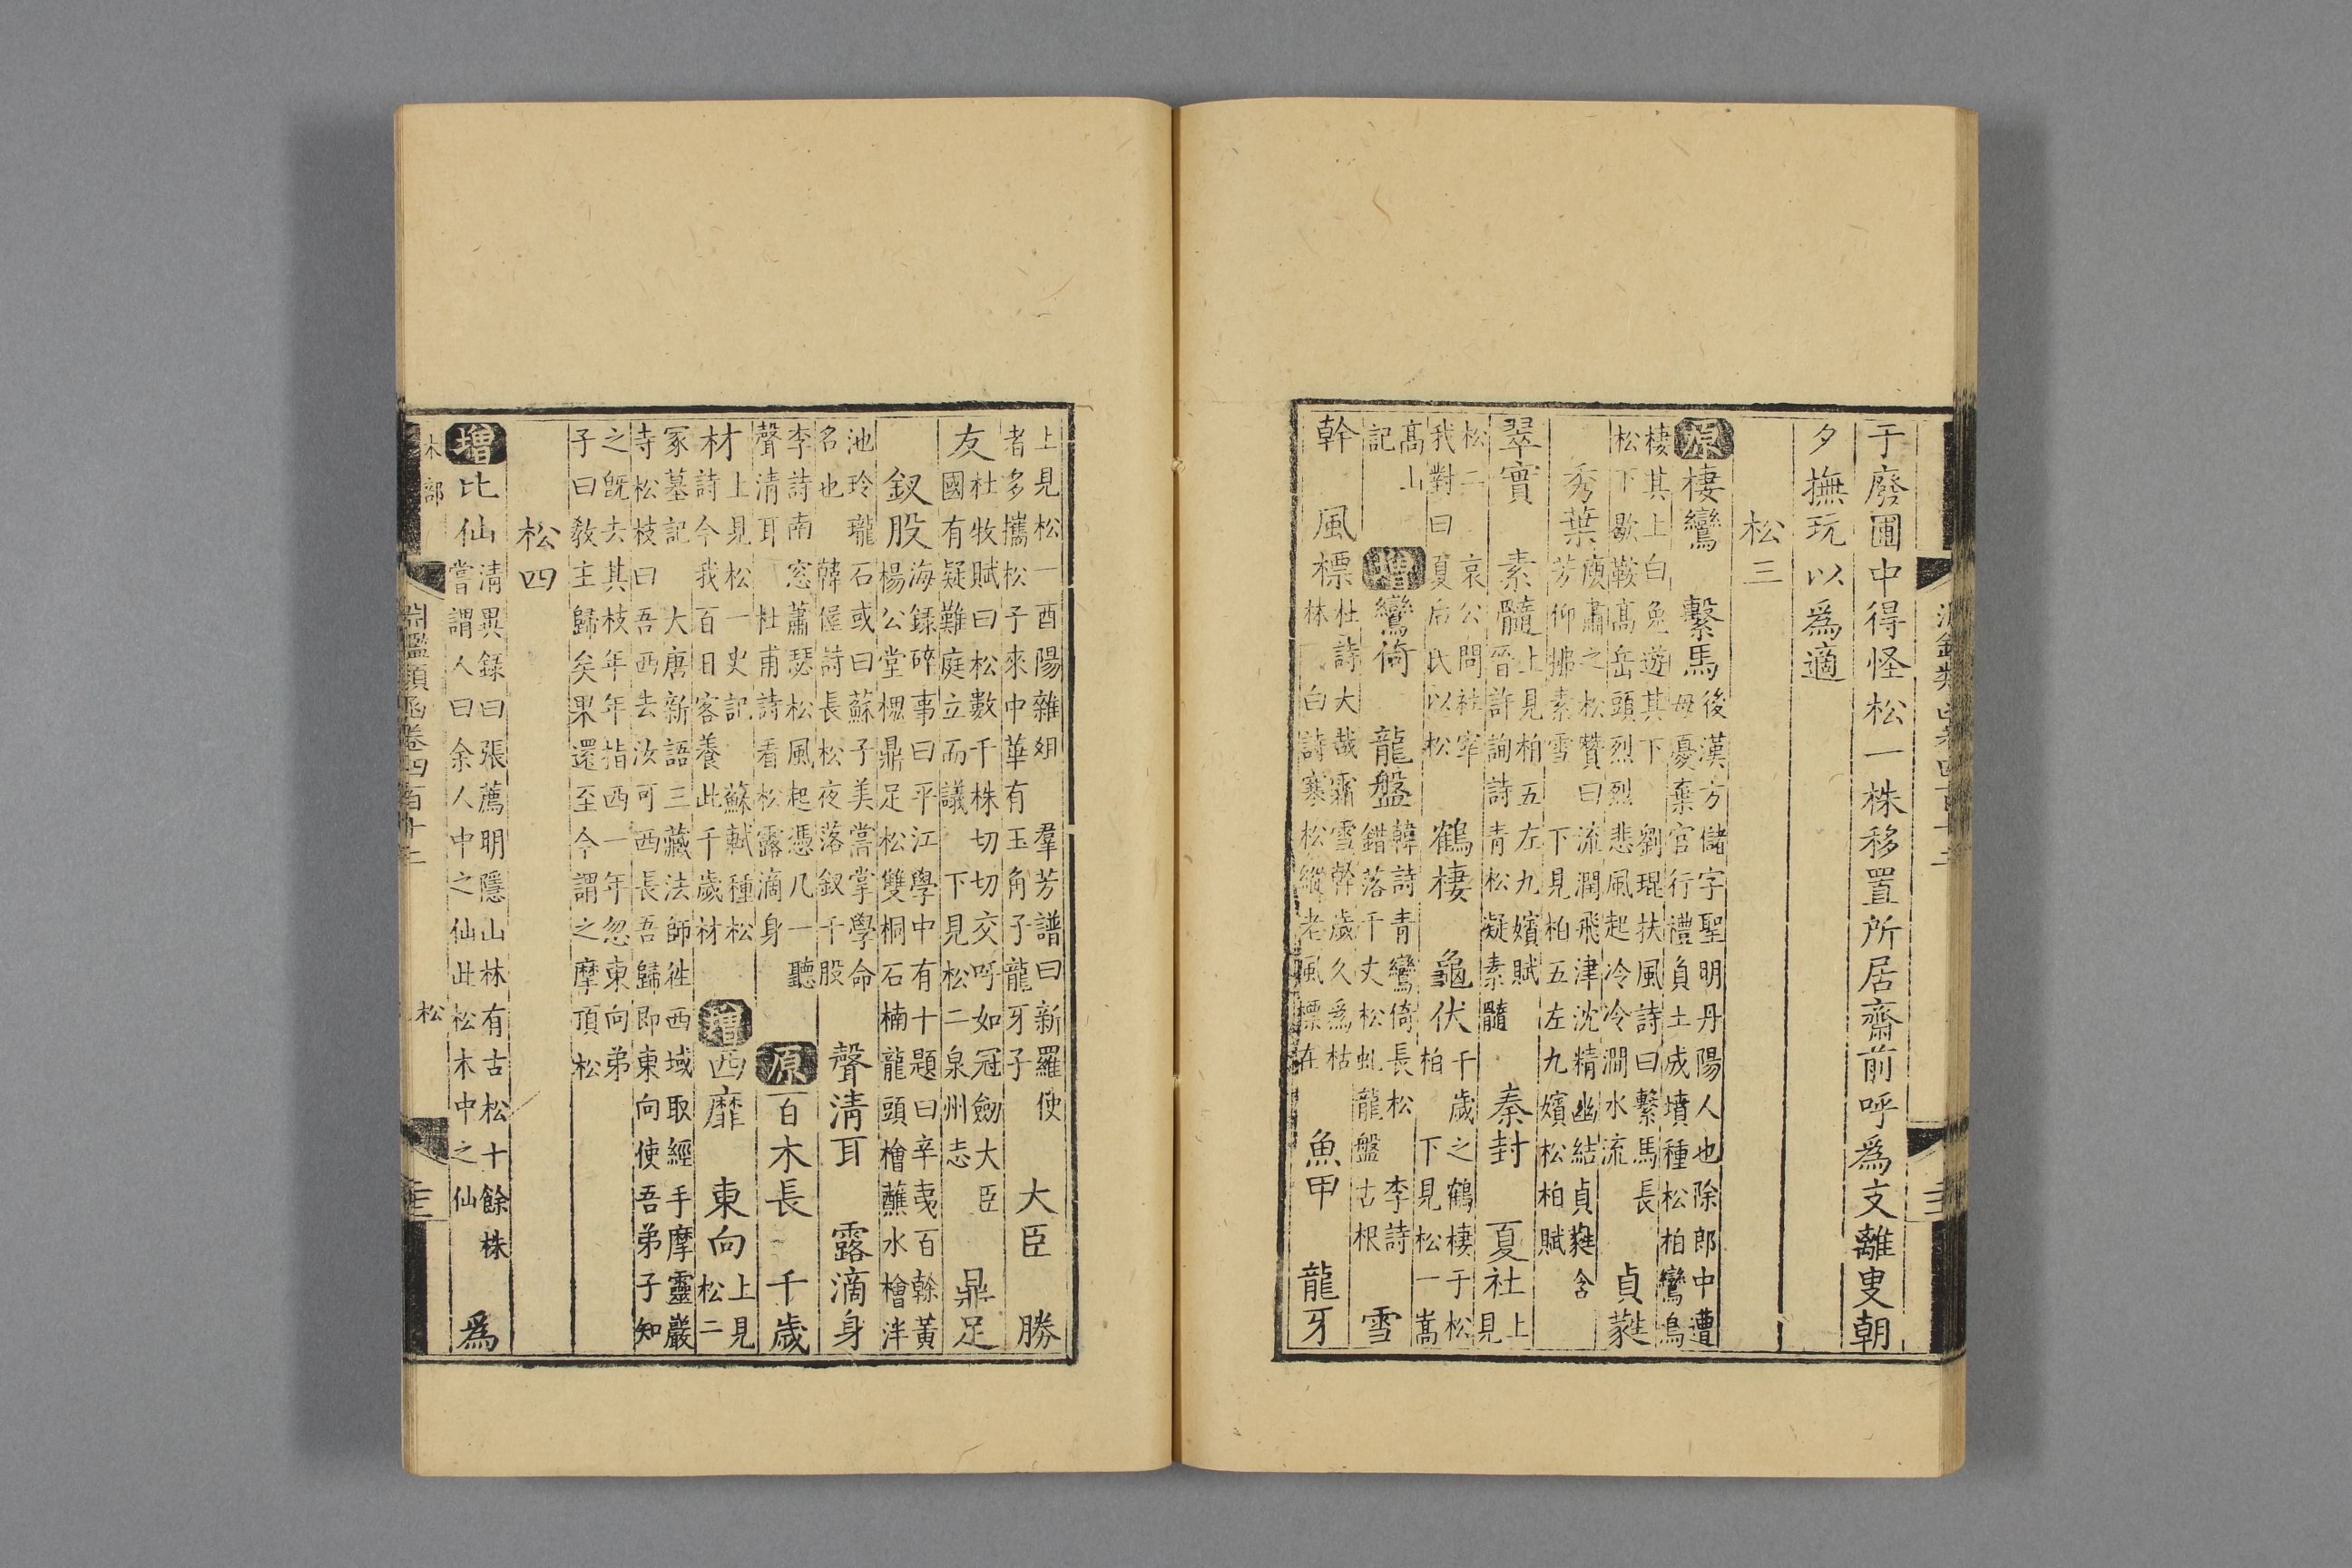 于廢圃中得怪松一株移置所居齋前呼爲文離叟朝
夕撫玩以爲適
松三
原 棲鸞 繫馬
後漢方儲字聖明丹陽人也除郎中遭
母憂棄官行禮負土成墳種松柏鸞鳥
棲其上白兔遊其下 劉琨扶風詩曰繫馬長
松下歇鞍高岳頭烈烈悲風起冷冷澗水流
貞蕤
秀葉
庾肅之松贊曰流潤飛津沈精幽結貞蕤含
芳仰拂素雪 下見柏五左九嬪松柏賦
翠實 素髓
上見柏五左九嬪賦
晉許詢詩青松凝素髓
秦封 夏社
上
見
松二 哀公問社宰
我對曰夏后氏以松
鶴棲 龜伏
千歲之鶴棲于松
柏下見松一嵩
高山
記
增 鸞倚 龍盤
韓詩青鸞倚長松 李詩
錯落千丈松虬龍盤古根
雪
幹 風標
杜詩大哉霜雪幹歲久爲枯
林 白詩寒松縱老風標在
魚甲 龍牙
上見松一酉陽雜俎 羣芳譜曰新羅使
者多攜松子來中華有玉角子龍牙子
大臣 勝
友
杜牧賦曰松數千株切切交呼如冠劒大臣
國有疑難庭立而議 下見松二泉州志
鼎足
釵股
海録碎事曰平江學中有十題曰辛夷百榦黃
楊公堂槐鼎足松雙桐石楠龍頭檜蘸水檜泮
池玲瓏石或曰蘇子美嘗掌學命
名也 韓偓詩長松夜落釵千股
聲清耳 露滴身
李詩南窓蕭瑟松風起憑几一聽
聲清耳 杜甫詩看松露滴身
原 百木長 千歲
材
上見松一史記 蘇軾種松
詩今我百日客養此千歲材
增 西靡 東向
上見
松二
冢墓記 大唐新語三藏法師往西域取經手摩靈巖
寺松枝曰吾西去汝可西長吾歸即東向使吾弟子知
之旣去其枝年年指西一年忽東向弟
子曰敎主歸矣果還至今謂之摩頂松
松四
增 比仙
清異録曰張薦明隱山林有古松十餘株
嘗謂人曰余人中之仙此松木中之仙
爲
木部 松
淵鑑類函卷四百十三